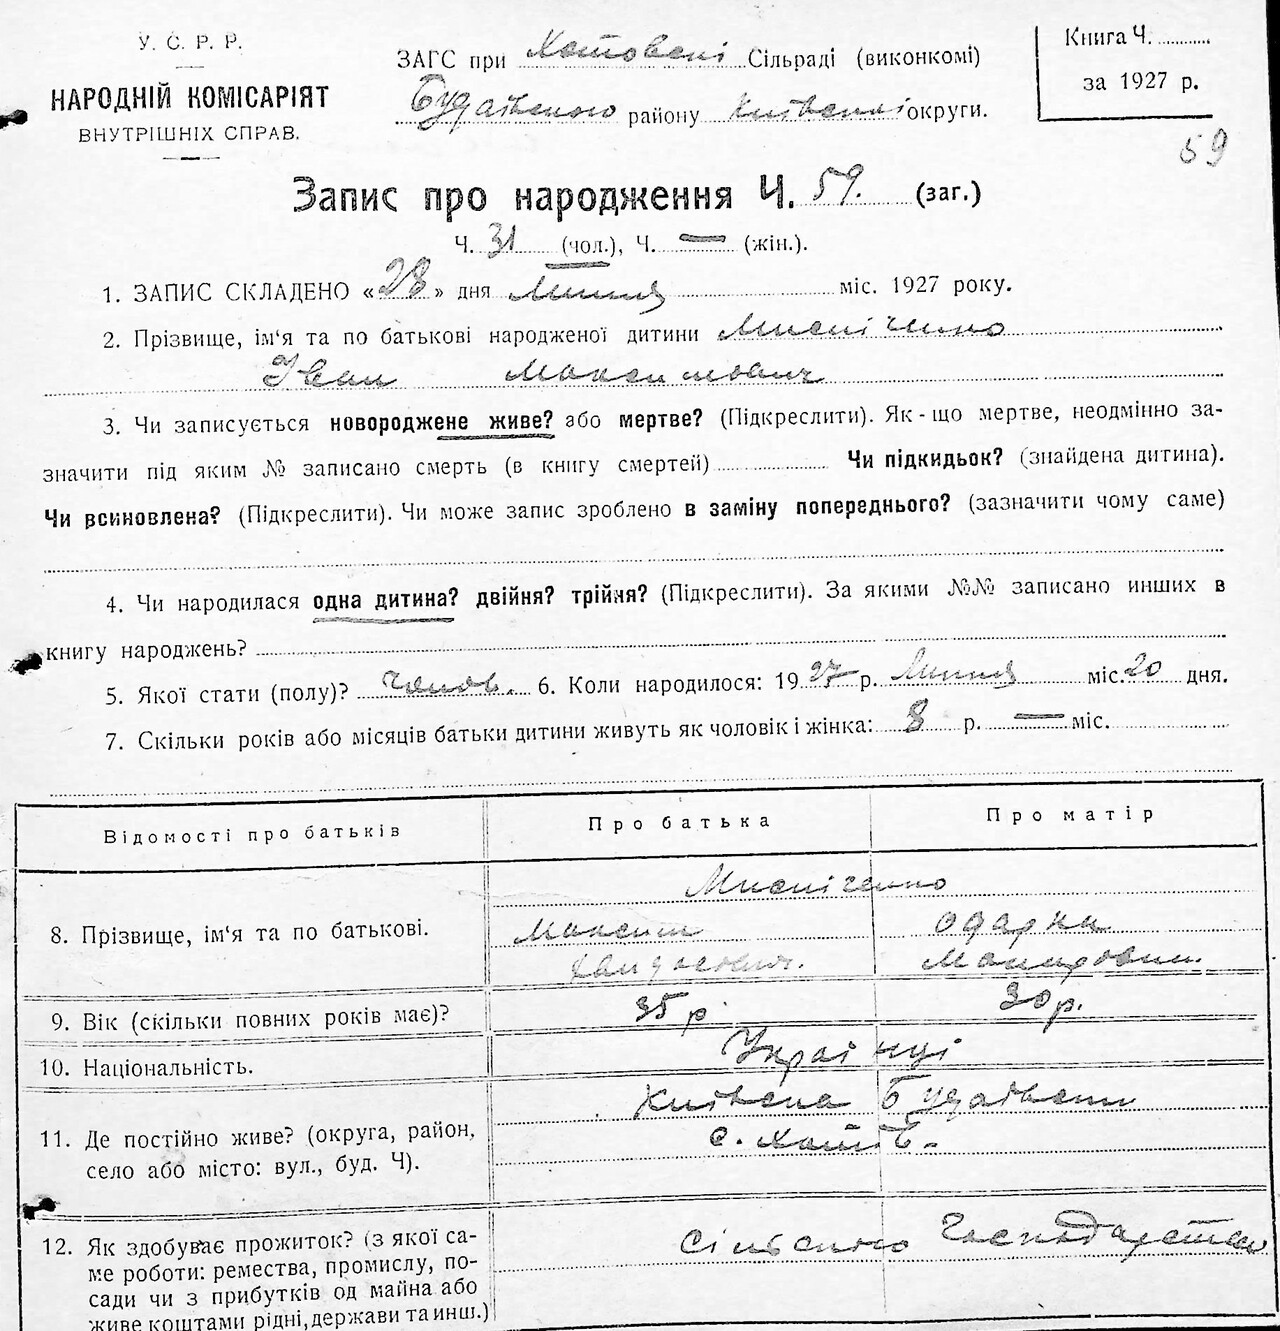 У. С. Р. Р.
НАРОДНІЙ КОМІСАРІЯТ
ВНУТРІШНІХ СПРАВ.
ЗАГС при Хотовській Сільраді (виконкомі)
Будаївського району Київської округи.
Книга Ч.
за 1927 р.
59
Запис про народження Ч. 59. (заг.)
Ч. 31 (чол.), Ч. — (жін.).
1. ЗАПИС СКЛАДЕНО «28» дня Липня міс. 1927 року.
2. Прізвище, ім'я та по батькові народженої дитини
Іван Максимович
3. Чи записується новороджене живе? або мертве? (Підкреслити). Як-що мертве, неодмінно за-
значити під яким № записано смерть (в книгу смертей) Чи підкидьок? (знайдена дитина).
Чи всиновлена? (Підкреслити). Чи може запис зроблено в заміну попереднього? (зазначити чому саме)
4. Чи народилася одна дитина? двійня? трійня? (Підкреслити). За якими №№ записано инших в
книгу народжень?
5. Якої стати (полу)? Чолов. 6. Коли народилося: 1927 р. Липня міс. 20 дня.
7. Скільки років або місяців батьки дитини живуть як чоловік і жінка: 8 р. — міс.
Відомості про батьків
Про батька
Про матір
8. Прізвище, ім'я та по батькові.
Максим
Одарка
9. Вік (скільки повних років має)?
35 р
30 р.
10. Національність.
Українці
11. Де постійно живе? (округа, район,
село або місто: вул., буд. Ч).
Київська Будаївськ
с. Хотів -
12. Як здобуває прожиток? (з якої са-
ме роботи: ремества, промислу, по-
сади чи з прибутків од майна або
живе коштами рідні, держави та инш.)
Сільське Господарство